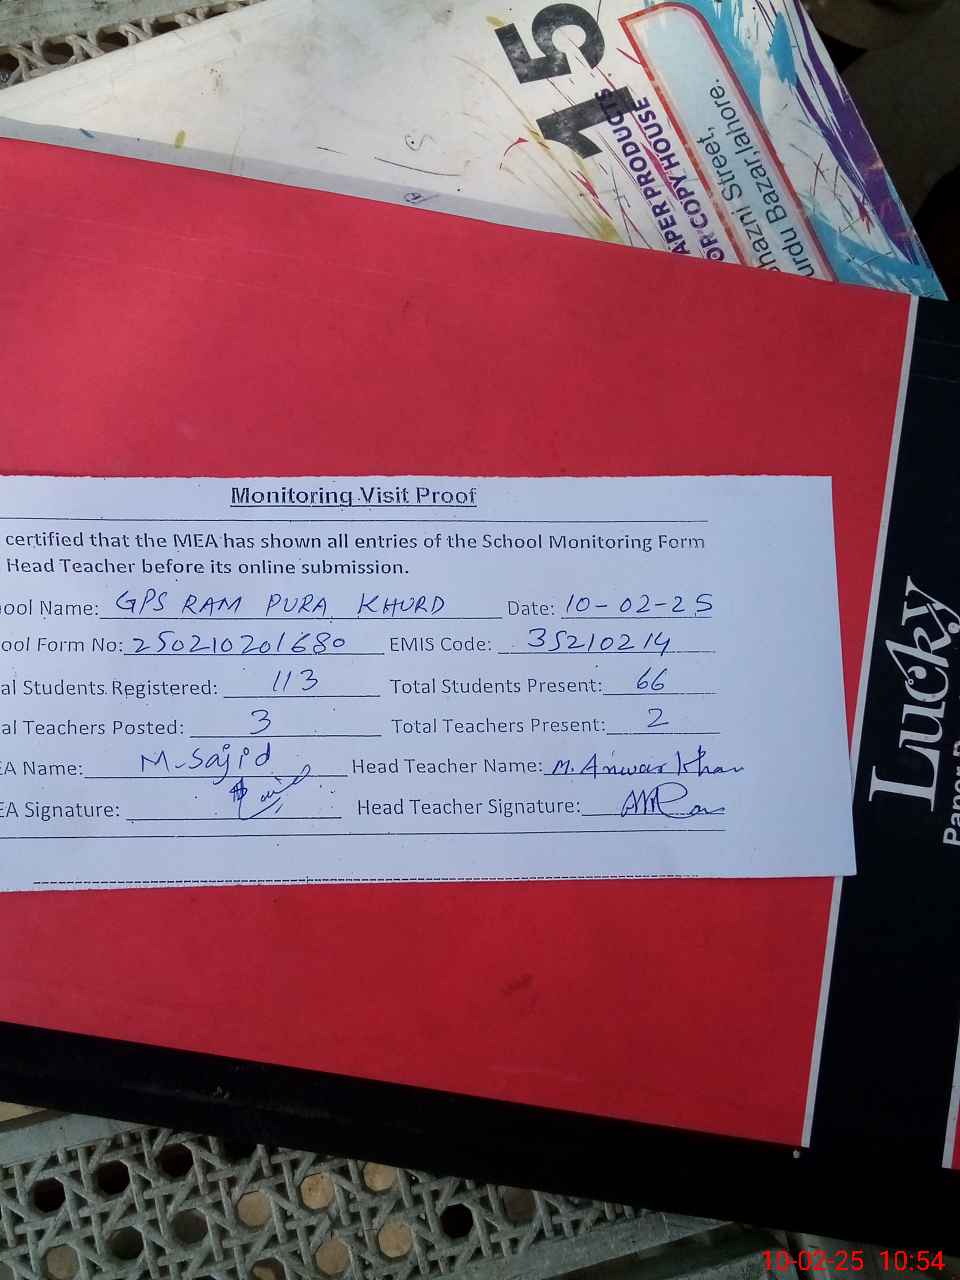 15
APER PRODUCTS
OR COPY HOUSE
hazni Street,
urdu Bazar, lahore.
Monitoring Visit Proof
certified that the MEA has shown all entries of the School Monitoring Form
Head Teacher before its online submission.
ool Name: GPS RAM PURA KHURD Date: 10-02-25
ool Form No: 250210201680 EMIS Code: 35210214
al Students Registered: 113 Total Students Present: 66
al Teachers Posted: 3 Total Teachers Present: 2
EA Name: M-Sajid Head Teacher Name: M. Anwar Khan
EA Signature: Head Teacher Signature:
Lucky
Paper
10-02-25 10:54